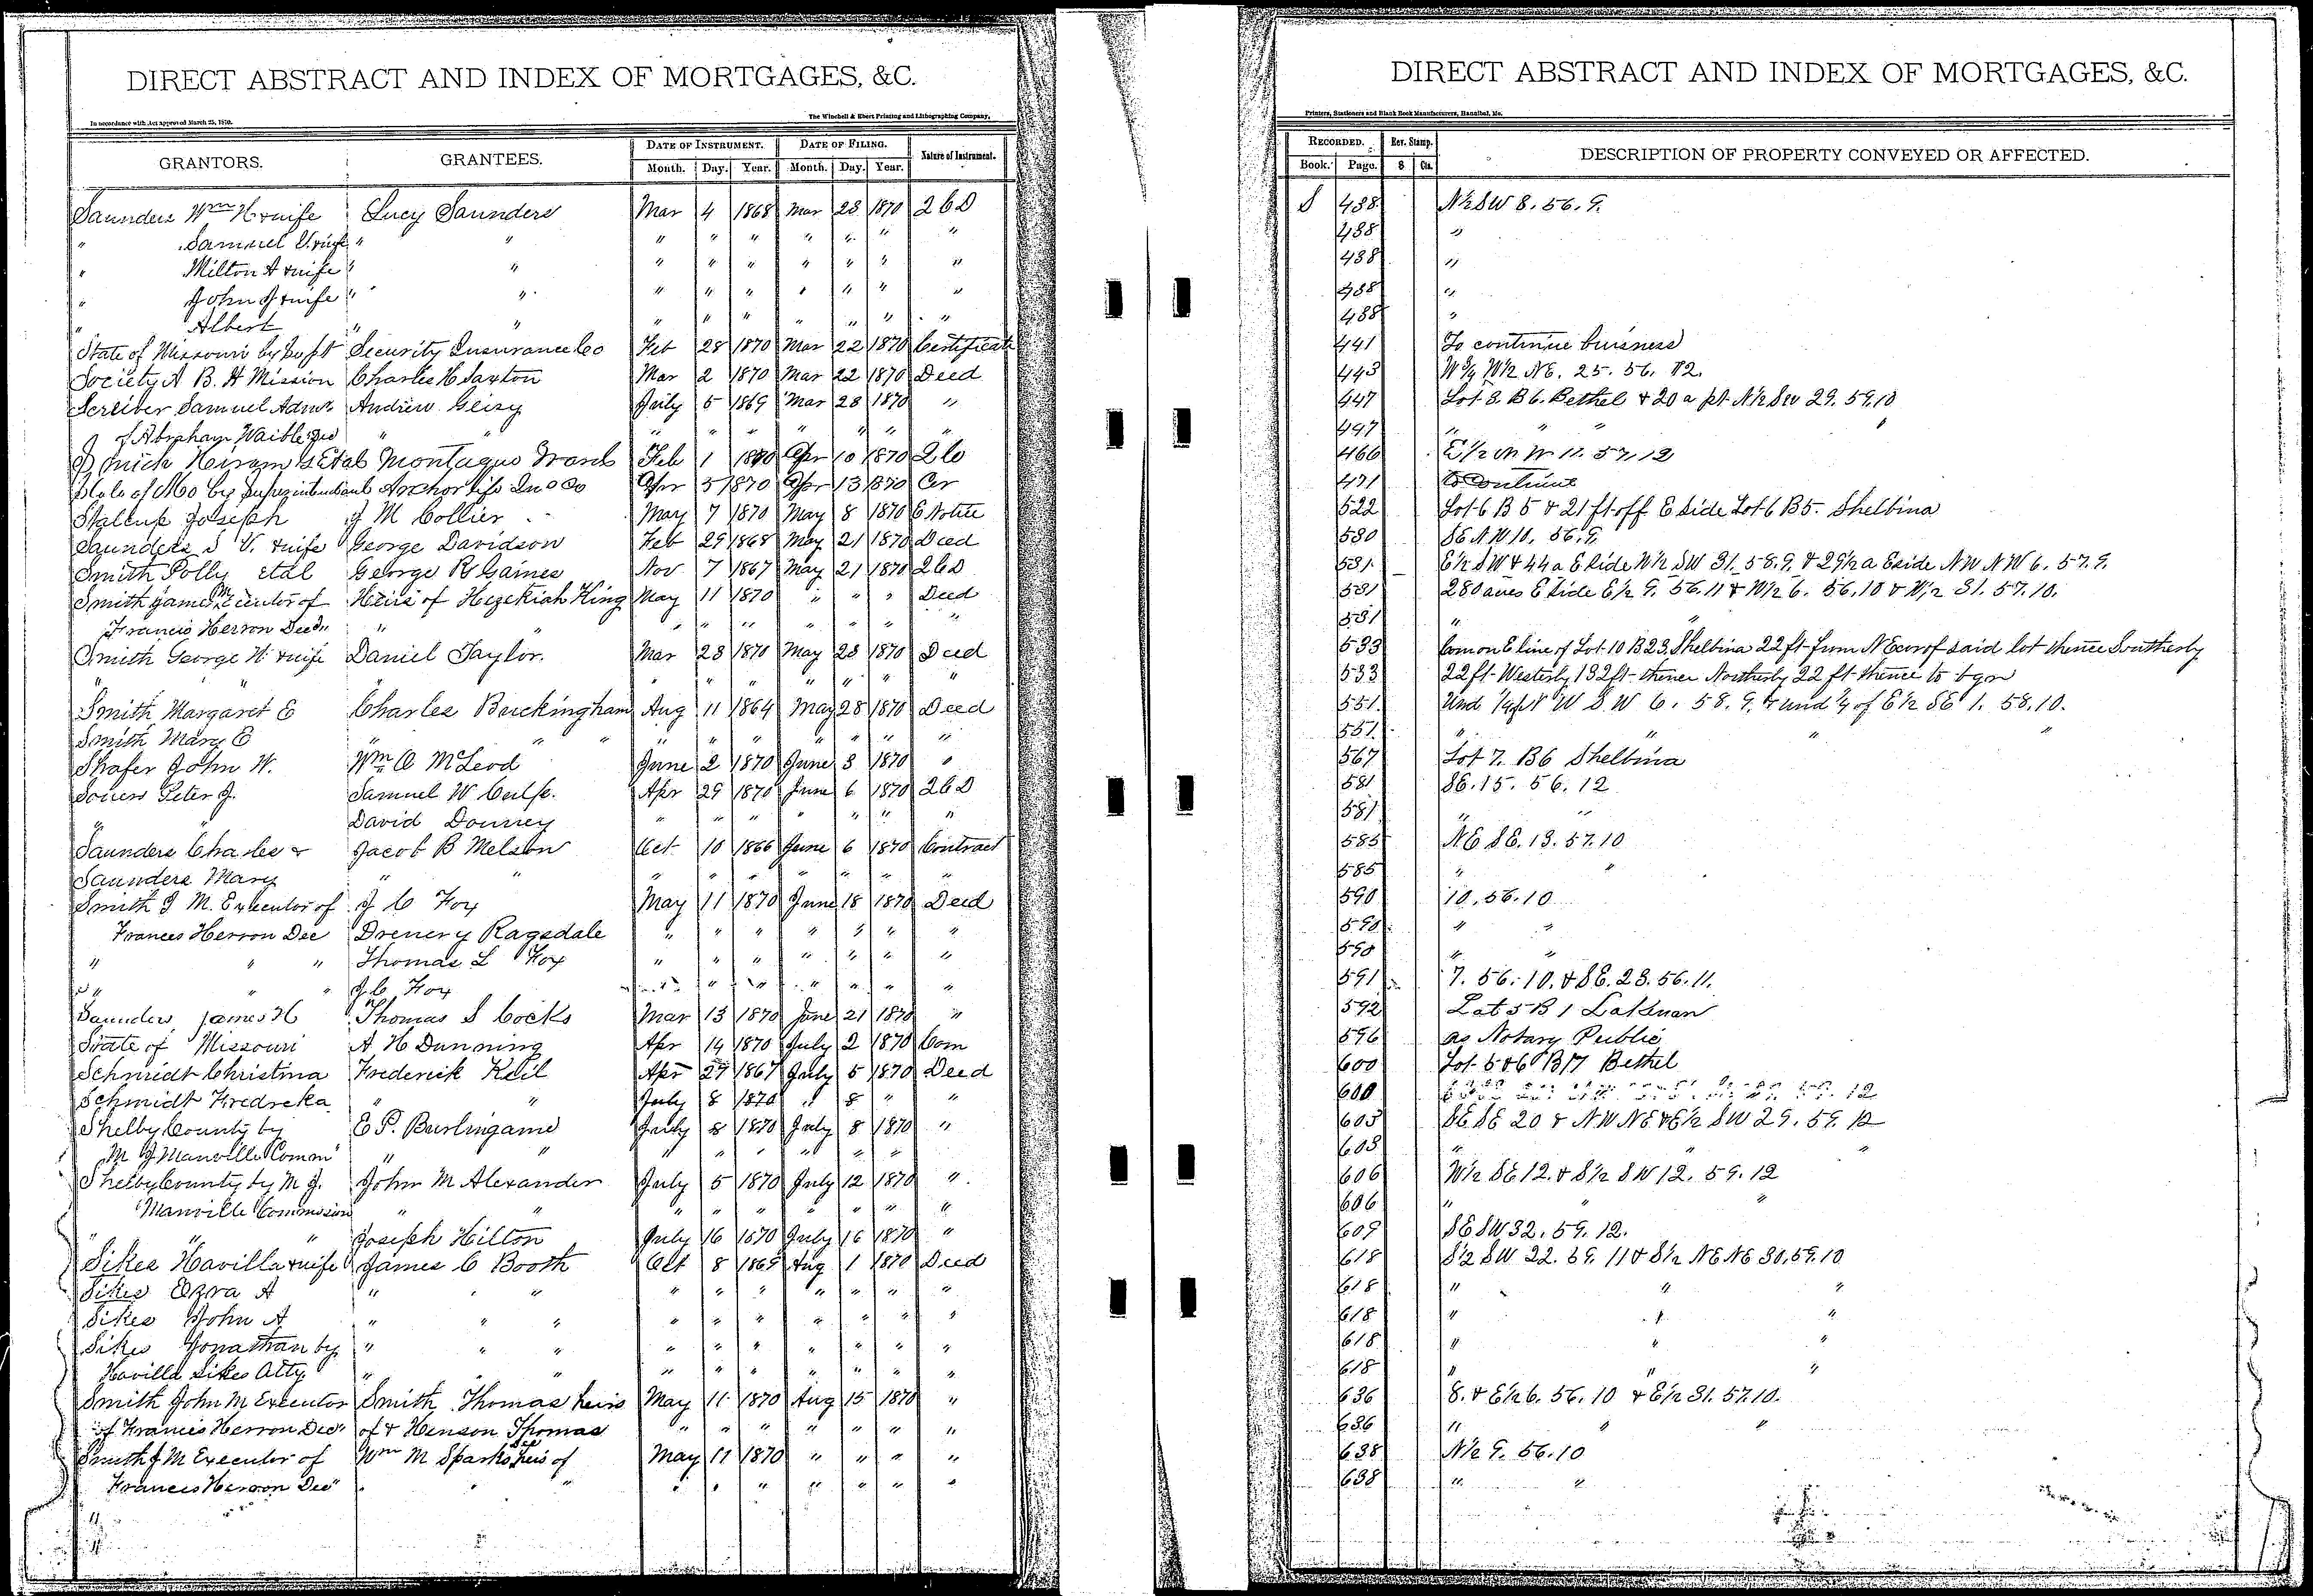 DIRECT ABSTRACT AND INDEX OF MORTGAGES, &C.
In accordance with Act approved March 25, 1870. The Winchell & Ebert Printing and Lithographing Company,
GRANTORS. GRANTEES. DATE OF INSTRUMENT. DATE OF FILING. Nature of Instrument.
Month. Day. Year. Month. Day. Year.
Saunders Wm H & wife Lucy Saunders Mar 4 1868 Mar 28 1870 2 C D
" Samuel V & wife " " " " " " " " "
" Milton A & wife " " " " " " " " "
" John J & wife " " " " " " " " "
" Albert " " " " " " " " "
State of Missouri by Supt Security Insurance Co Feb 28 1870 Mar 22 1870 Certificate
Society A B. H Mission Charles H Saxton Mar 2 1870 Mar 22 1870 Deed
Samuel Admr Andrew Geisy July 5 1869 Mar 28 1870 "
of Abraham " " " " " " " " "
Hiram Etal Montague Feb 1 1870 Apr 10 1870
State of Mo by Superintendent Anchor Life Ins Co Apr 5 1870 Apr 13 1870 Cer
Stalcup Joseph J M Collier May 7 1870 May 8 1870
Saunders S V. & wife George Davidson Feb 29 1868 May 21 1870 Deed
Smith Polly etal George R Gaines Nov 7 1867 May 21 1870 2 C D
Smith James M Executor of Heirs of Hezekiah King May 11 1870 " " " Deed
Francis Herron Decd " " " " " " " " "
Smith George W & wife Daniel Taylor. Mar 28 1870 May 28 1870 Deed
" " " " " " "
Smith Margaret E Charles Buckingham Aug 11 1864 May 28 1870 Deed
Smith Mary E " " " " " " " " " "
Shafer John W. Wm O McLeod June 2 1870 June 3 1870 "
Peter J. Samuel W Culp. Apr 29 1870 June 6 1870 2 C D
" " David " " " " " " "
Saunders Charles & Jacob B Melson Oct 10 1866 June 6 1870 Contract
Saunders Mary " " " " " " " " "
Smith J M. Executor of J C Fox May 11 1870 June 18 1870 Deed
Frances Herron Dec Drenery Ragsdale " " " " " " "
" " " Thomas L Fox " " " " " " "
" " " J C Fox " " " " " " "
Saunders James H Thomas S Cocks Mar 13 1870 June 21 1870 "
State of Missouri A H Dunning Apr 14 1870 July 2 1870 Com
Schmidt Christina Frederick Keil Apr 27 1867 July 5 1870 Deed
Schmidt Fredreka " " July 8 1870 " 8 " "
Shelby County by E P. Burlingame July 8 1870 July 8 1870 "
M J Manville Comon " " " " " " " "
Shelby County by M J. John M Alexander July 5 1870 July 12 1870 "
Manville Commission " " " " " " " " "
" " " Joseph Hilton July 16 1870 July 16 1870 "
Sikes Havilla & wife James C Booth Oct 8 1869 Aug 1 1870 Deed
Sikes Ezra A " " " " " " " " " "
Sikes John A " " " " " " " " " "
Sikes Jonathan by " " " " " " " " " "
Havilla Sikes Atty " " " " " " " " "
Smith John M Executor Smith Thomas heirs May 11 1870 Aug 15 1870 "
of Francis Herron Decd of & Henson Thomas " " " " " " "
Smith J M Executor of Wm M Sparks Dec heirs of May 11 1870 " " " "
Francis Herron Dec " " " " " " " "
DIRECT ABSTRACT AND INDEX OF MORTGAGES, &C.
Printers, Stationers and Blank Book Manufacturers, Hannibal, Mo.
RECORDED. Rev. Stamp. DESCRIPTION OF PROPERTY CONVEYED OR AFFECTED.
Book. Page. $ Cts.
S 438 N½ SW 8. 56. 9.
438 "
438 "
438 "
438 "
441 To continue buisness
443 W ¾ W½ NE. 25. 56. 12.
447 Lot 8. B 6. Bethel & 20 a pt N½ SW 29. 59. 10
497 " " "
466 E½ N W 11. 57. 12
471 to continue
522 Lot 6 B 5 & 21 ft off E side Lot 6 B 5. Shelbina
530 SE NW 10. 56. 9.
531 E½ SW & 44 a E side W½ SW 31. 58. 9. & 29½ a E side NW NW 6. 57. 9.
531 280 acres E side E½ 9. 56. 11 & W½ 6. 56. 10 & W½ 31. 57. 10.
531 " "
533 Com on E line of Lot 10 B 23 Shelbina 22 ft from N E cor of said lot thence Southerly
533 22 ft Westerly 132 ft thence Northerly 22 ft thence to bgn
551 Und ¼ of N W S W 6. 58. 9. & und ¼ of E½ SE 1. 58. 10.
551 " " " "
567 Lot 7. B 6 Shelbina
581 SE. 15. 56. 12
581 " "
585 NE SE. 13. 57. 10
585 " "
590 10. 56. 10
590 " "
590 " "
591 7. 56. 10. & SE. 23. 56. 11.
592 Lot 5 B 1 Lakenan
596 as Notary Public
600 Lot 5 & 6 B 17 Bethel
600 12
603 SE SE 20 & NW NE & E½ SW 29. 59. 12
603 " "
606 W½ SE 12. & S½ SW 12. 59. 12
606 " " "
609 SE SW 32. 59. 12.
618 S½ SW 22. 59. 11 & S½ NE NE 30. 59. 10
618 " " "
618 " " "
618 " " "
618 " " "
636 8. & E½ 6. 56. 10 & E½ 31. 57. 10.
636 " " "
638 N½ 9. 56. 10
638 " "